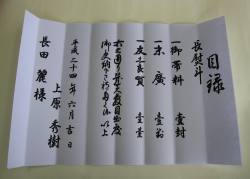 目録
長熨斗
一御帯料 壹封
一末廣 壹對
一友志良賀 壹臺
右之通り幾久敷目出度
御受納下され度候 以上
平成二十四年六月吉日
上原秀樹
長田麗様